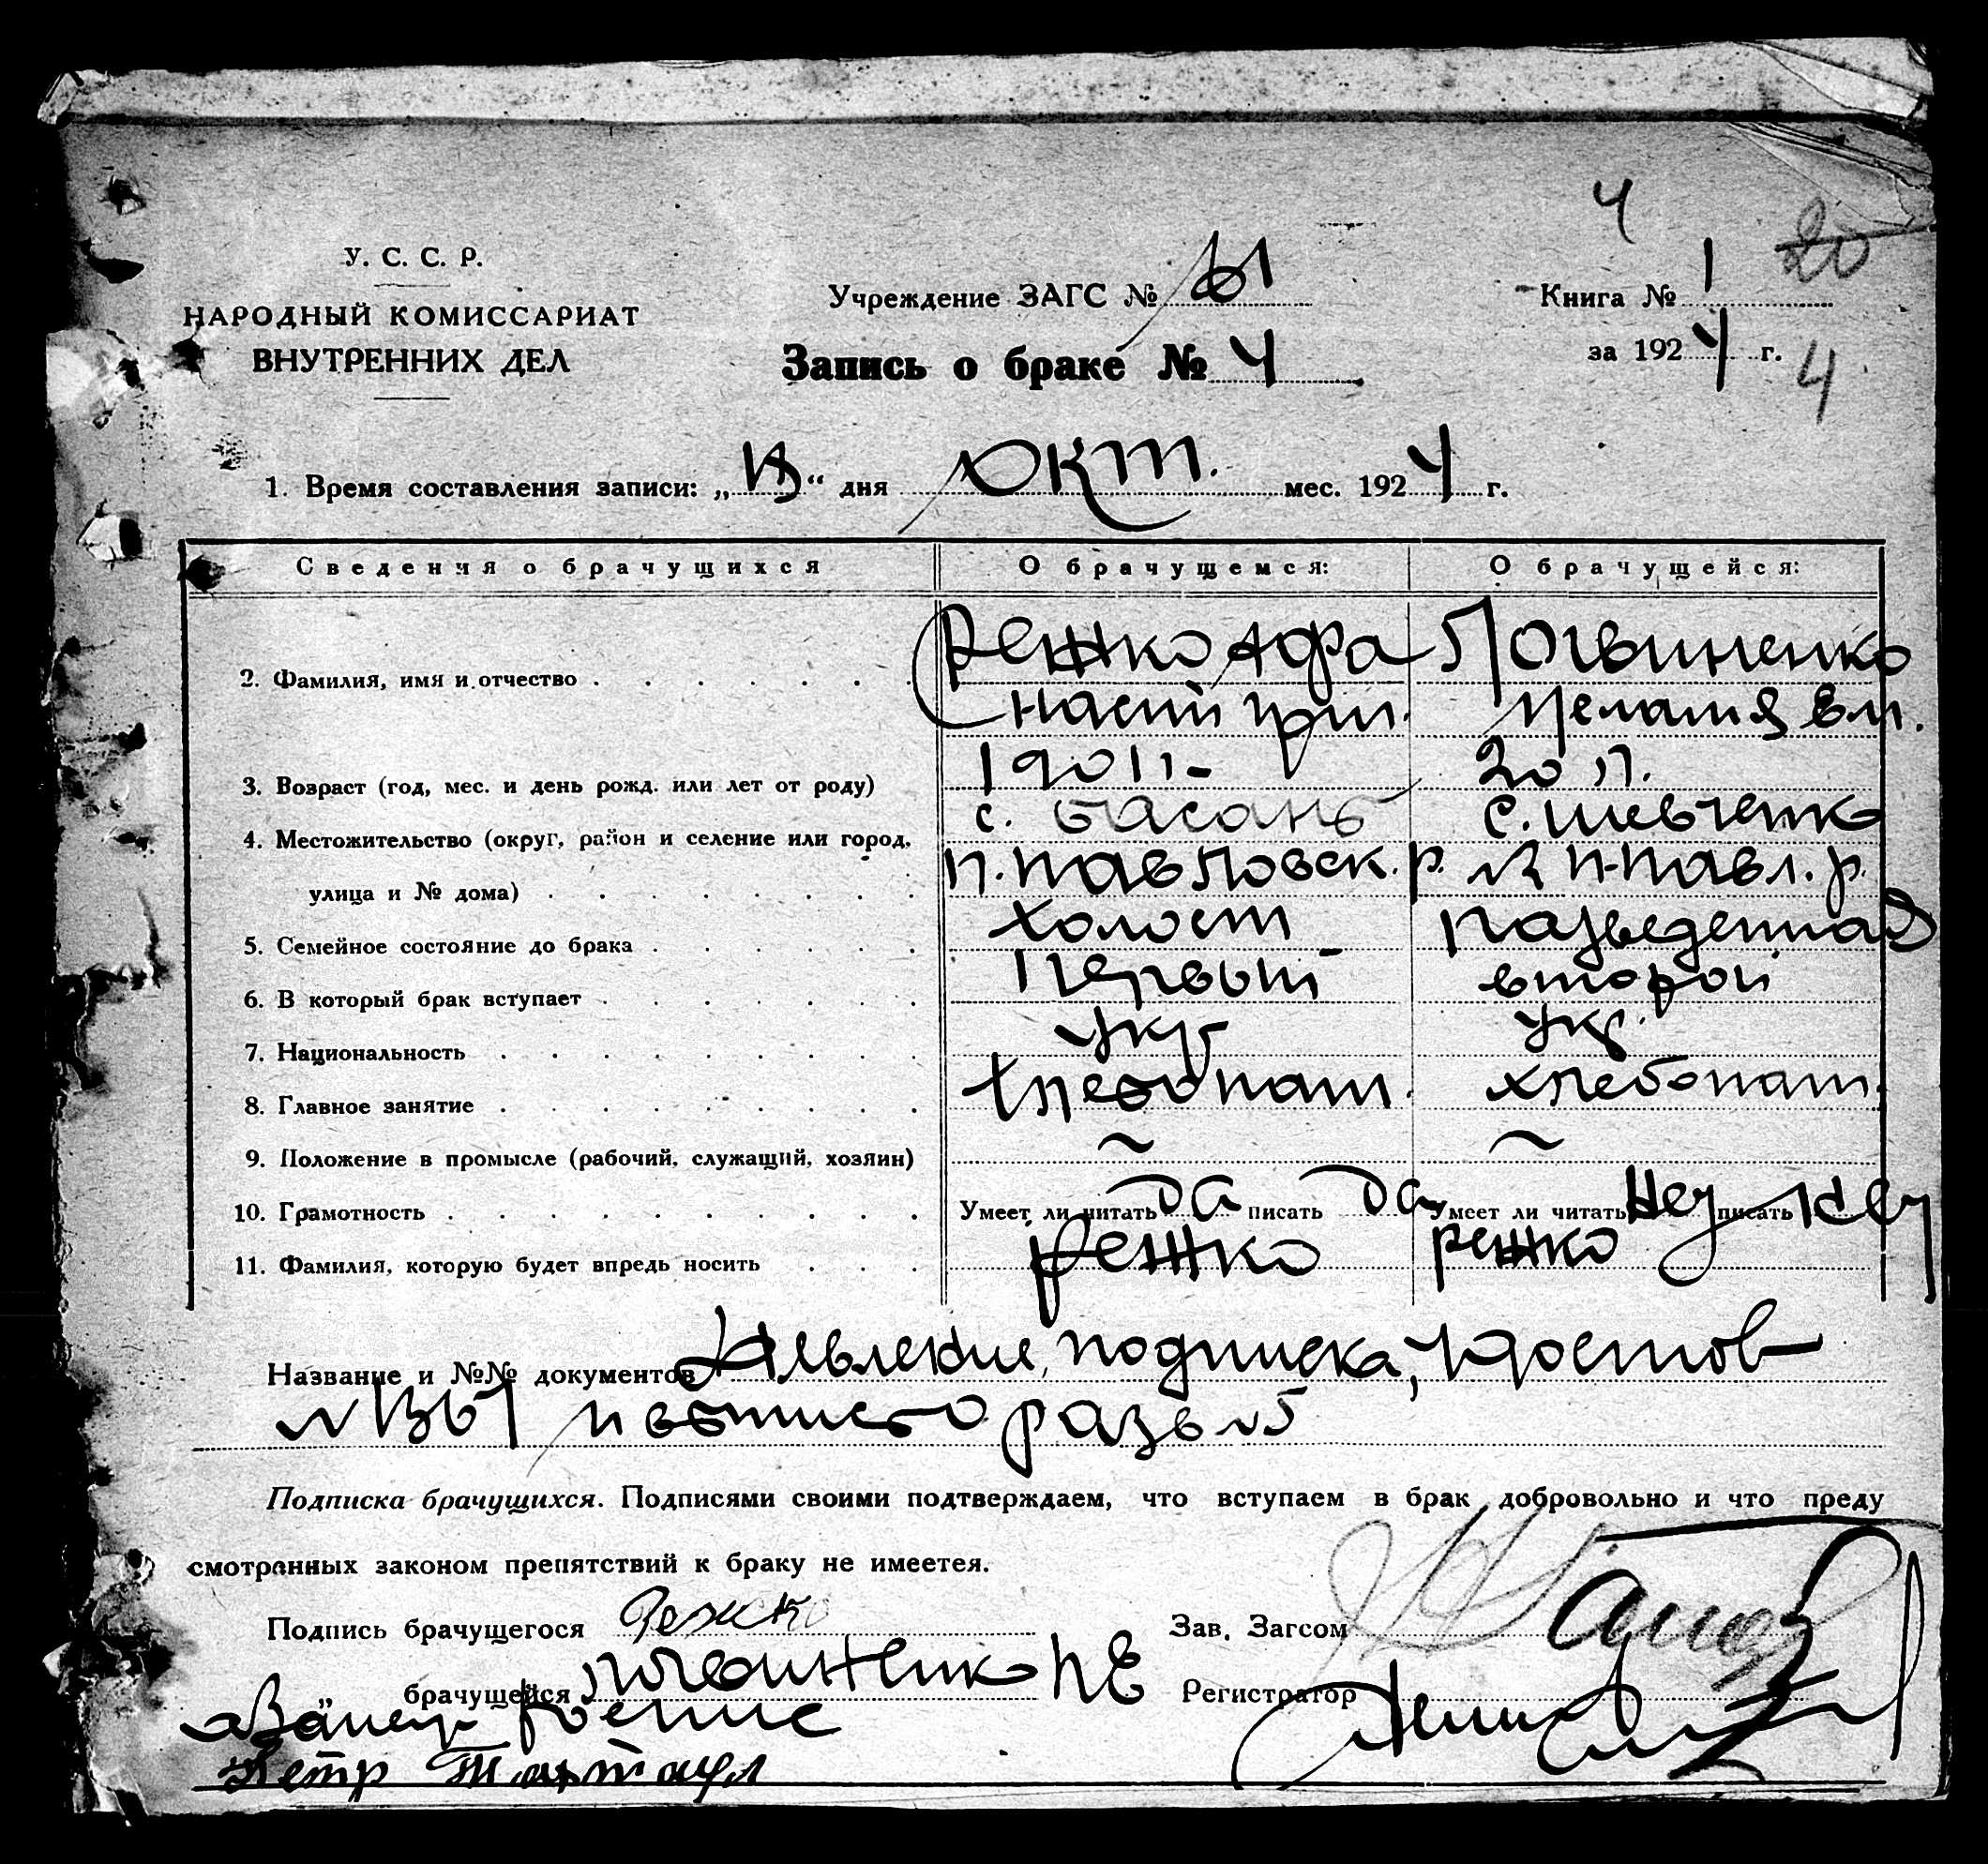 4
20
У. С. С. Р.
НАРОДНЫЙ КОМИССАРИАТ
ВНУТРЕННИХ ДЕЛ
Учреждение ЗАГС №
Книга № 1
Запись о браке № 4
за 1924 г.
4
1. Время составления записи: „ “ дня Окт. мес. 1924 г.
Сведения о брачущихся О брачущемся: О брачущейся:
2. Фамилия, имя и отчество
Режко Афа Логвиненко
насий Гри. Мелания
3. Возраст (год, мес. и день рожд. или лет от роду) 20 л.
4. Местожительство (округ, район и селение или город, с. Басань с. Шевченк
улица и № дома) П. Павловск. р. П-Павл. р.
5. Семейное состояние до брака холост разведенная
6. В который брак вступает Первый второй
7. Национальность Укр Укр.
8. Главное занятие хлебопаш. хлебопаш.
9. Положение в промысле (рабочий, служащий, хозяин) ~ ~
10. Грамотность Умеет ли читать Да писать Да Умеет ли читать Неу писать Неу
11. Фамилия, которую будет впредь носить Режко Режко
Название и №№ документов подписка, Удостов
Подписка брачущихся. Подписями своими подтверждаем, что вступаем в брак добровольно и что преду
смотренных законом препятствий к браку не имеетея.
Подпись брачущегося Режко Зав. Загсом
брачущейся Логвиненко Регистратор
Петр